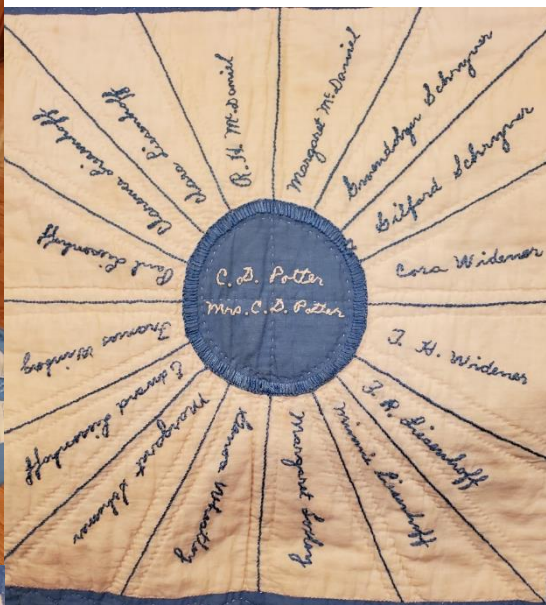 C. D. Potter
Mrs. C. D. Potter
R. H. McDaniel
Margaret McDaniel
Gwendolyn Schryver
Gilford Schryver
Cora Widener
T. H. Widener
F. R. Lisenhoff
Minnie Lisenhoff
Margaret
Wheatley
Margaret
Edward Lisenhoff
Frances
Paul Lisenhoff
Clarence Lisenhoff
Clara Lisenhoff